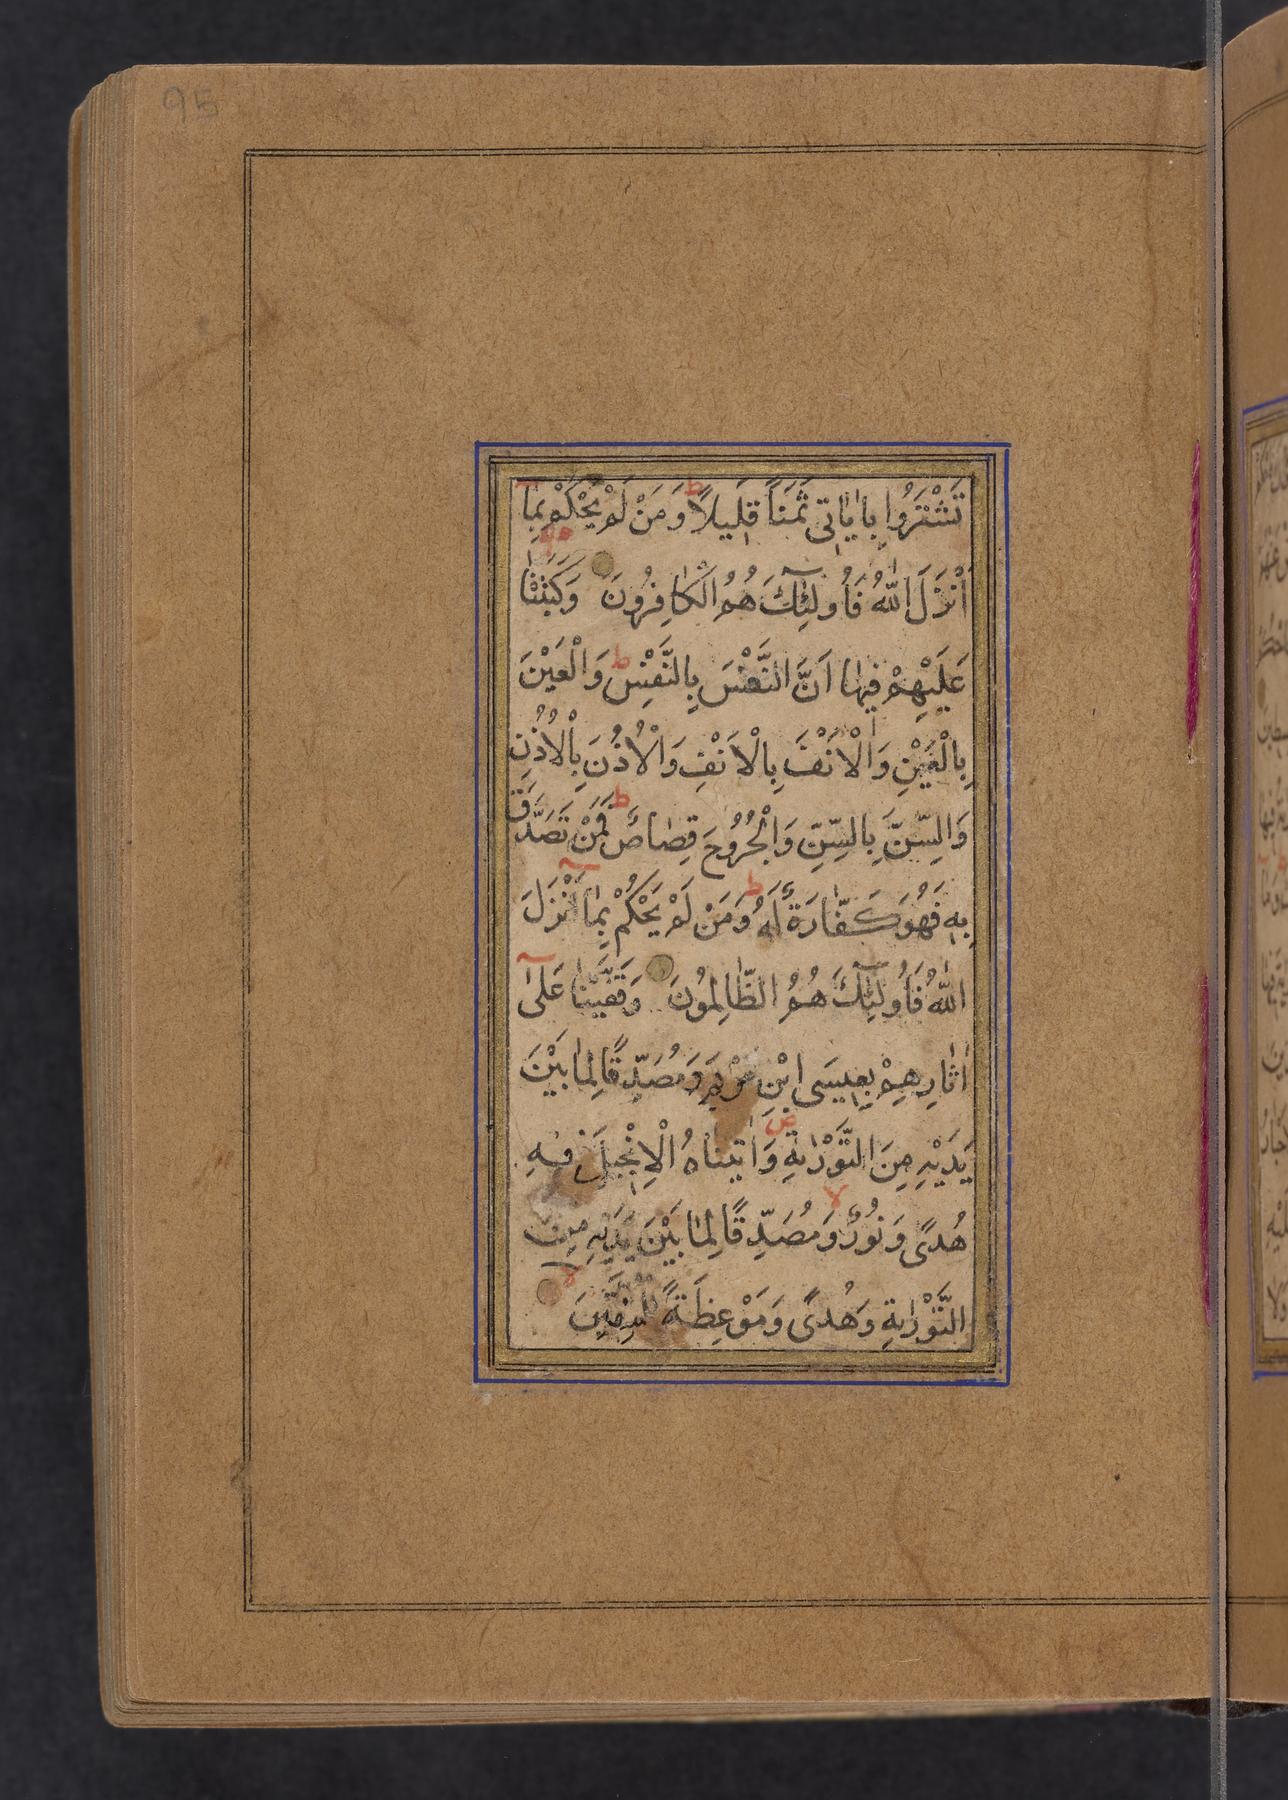 95
تَشْتَرُوا بِاٰيٰاتِي ثَمَنًا قَلِيلًا ط وَمَنْ لَمْ يَحْكُمْ بِمٰا
اَنْزَلَ اللّٰهُ فَاُولٰئِكَ هُمُ الْكٰافِرُونَ وَكَتَبْنٰا
عَلَيْهِمْ فِيهٰا اَنَّ النَّفْسَ بِالنَّفْسِ ط وَالْعَيْنَ
بِالْعَيْنِ وَالْاَنْفَ بِالْاَنْفِ وَالْاُذُنَ بِالْاُذُنِ
وَالسِّنَّ بِالسِّنِّ وَالْجُرُوحَ قِصٰاصٌ ط فَمَنْ تَصَدَّقَ
بِهِ فَهُوَ كَفّٰارَةٌ لَهُ ط وَمَنْ لَمْ يَحْكُمْ بِمٰا اَنْزَلَ
اللّٰهُ فَاُولٰئِكَ هُمُ الظّٰالِمُونَ وَقَفَّيْنٰا عَلٰى
اٰثٰارِهِمْ بِعِيسَى ابْنِ مَرْيَمَ وَمُصَدِّقًا لِمٰا بَيْنَ
يَدَيْهِ مِنَ التَّوْرٰيةِ وَاٰتَيْنٰاهُ الْاِنْجِيلَ فِيهِ
هُدًى وَنُورٌ لا وَمُصَدِّقًا لِمٰا بَيْنَ يَدَيْهِ مِنَ
التَّوْرٰيةِ وَهُدًى وَمَوْعِظَةً لِلْمُتَّقِينَ لا